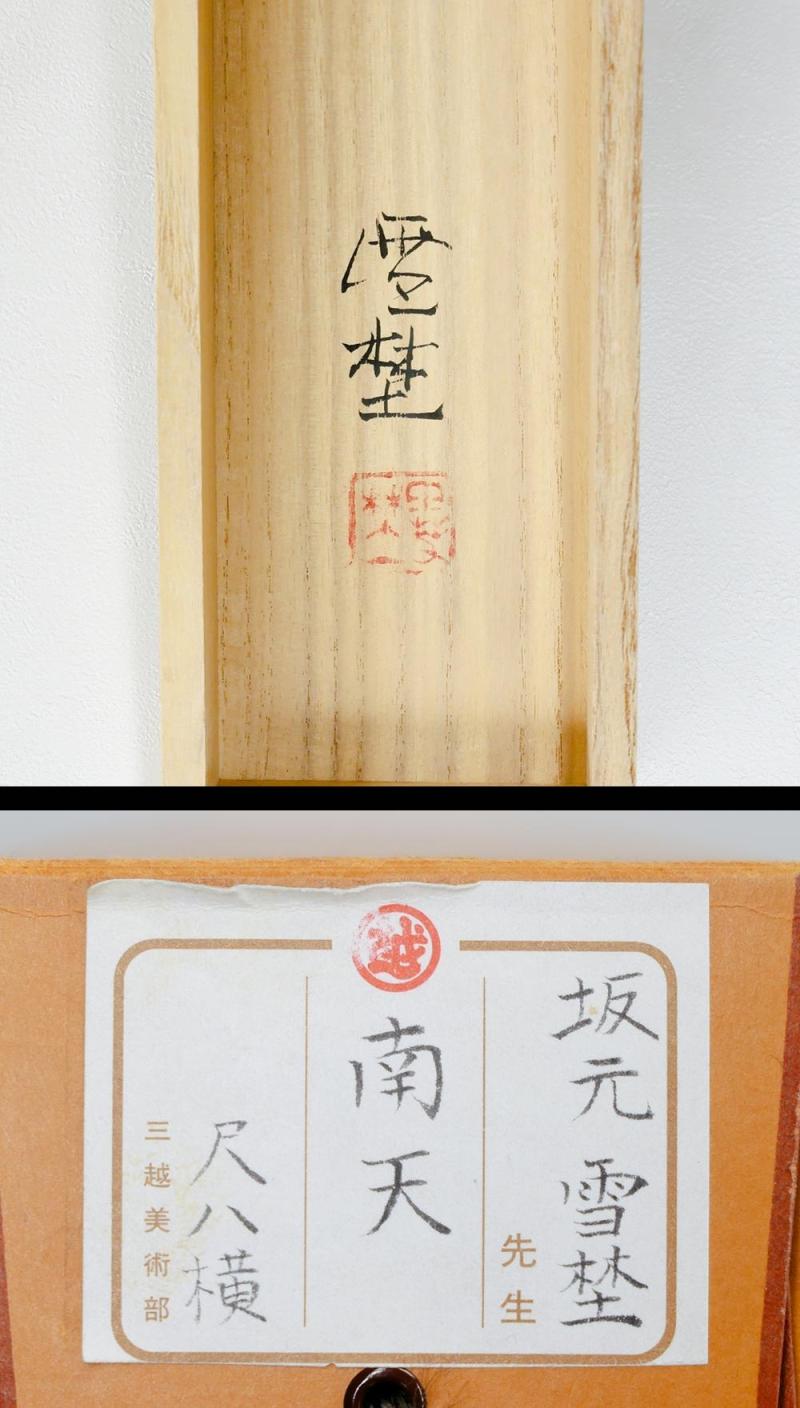 雪埜
越
坂元 雪埜
先生
南天
尺八横
三越美術部